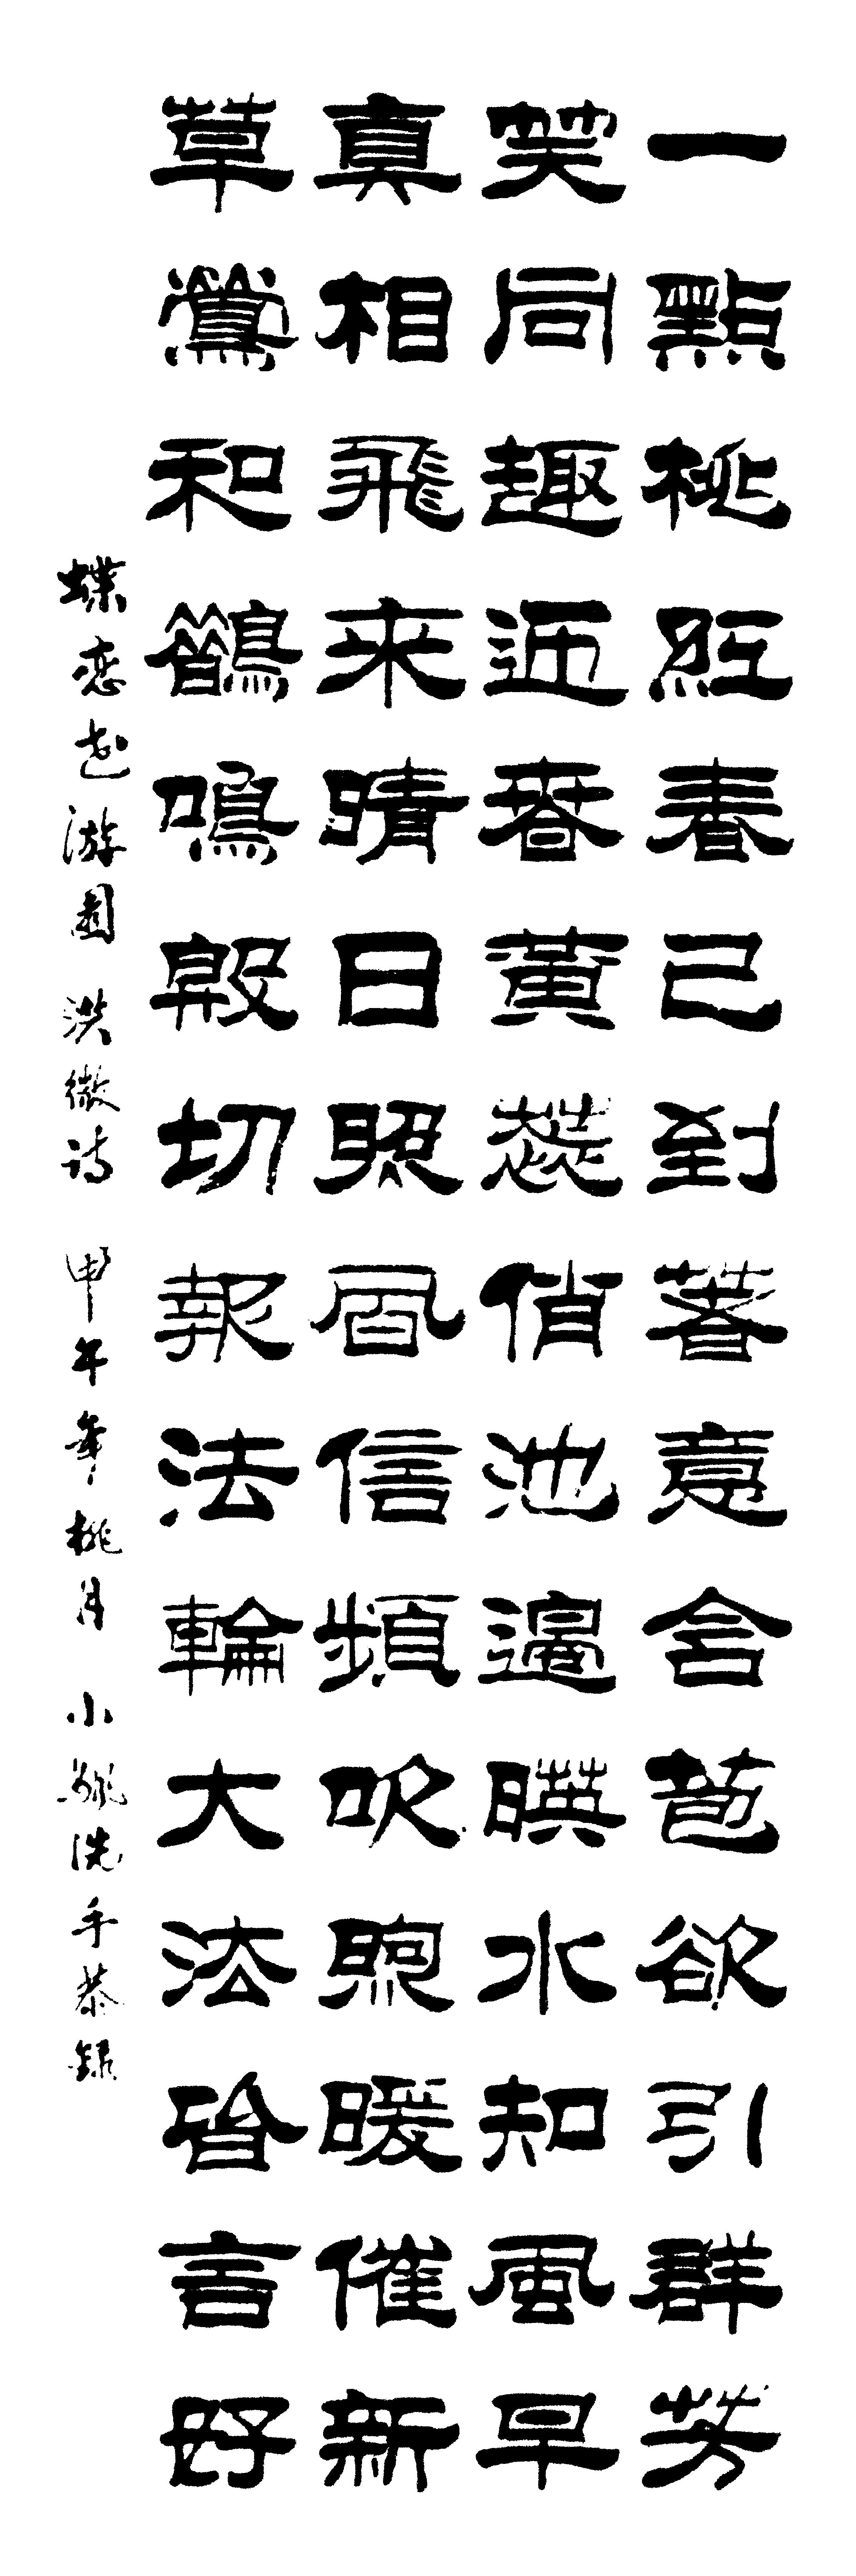 一點桃紅春已到著意含苞欲引群芳
笑同趣迎春黃蕊俏池邊暎水知風早
真相飛來晴日照風信頻吹煦暖催新
草鶯和鵲鳴殷切報法輪大法皆言好
蝶恋花游園 洪微詩 甲午年桃月 小洗手恭錄